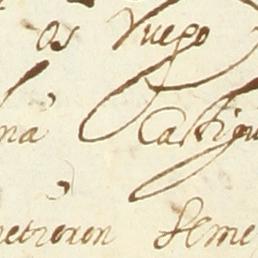 os ruego
na castigu
metieron seme